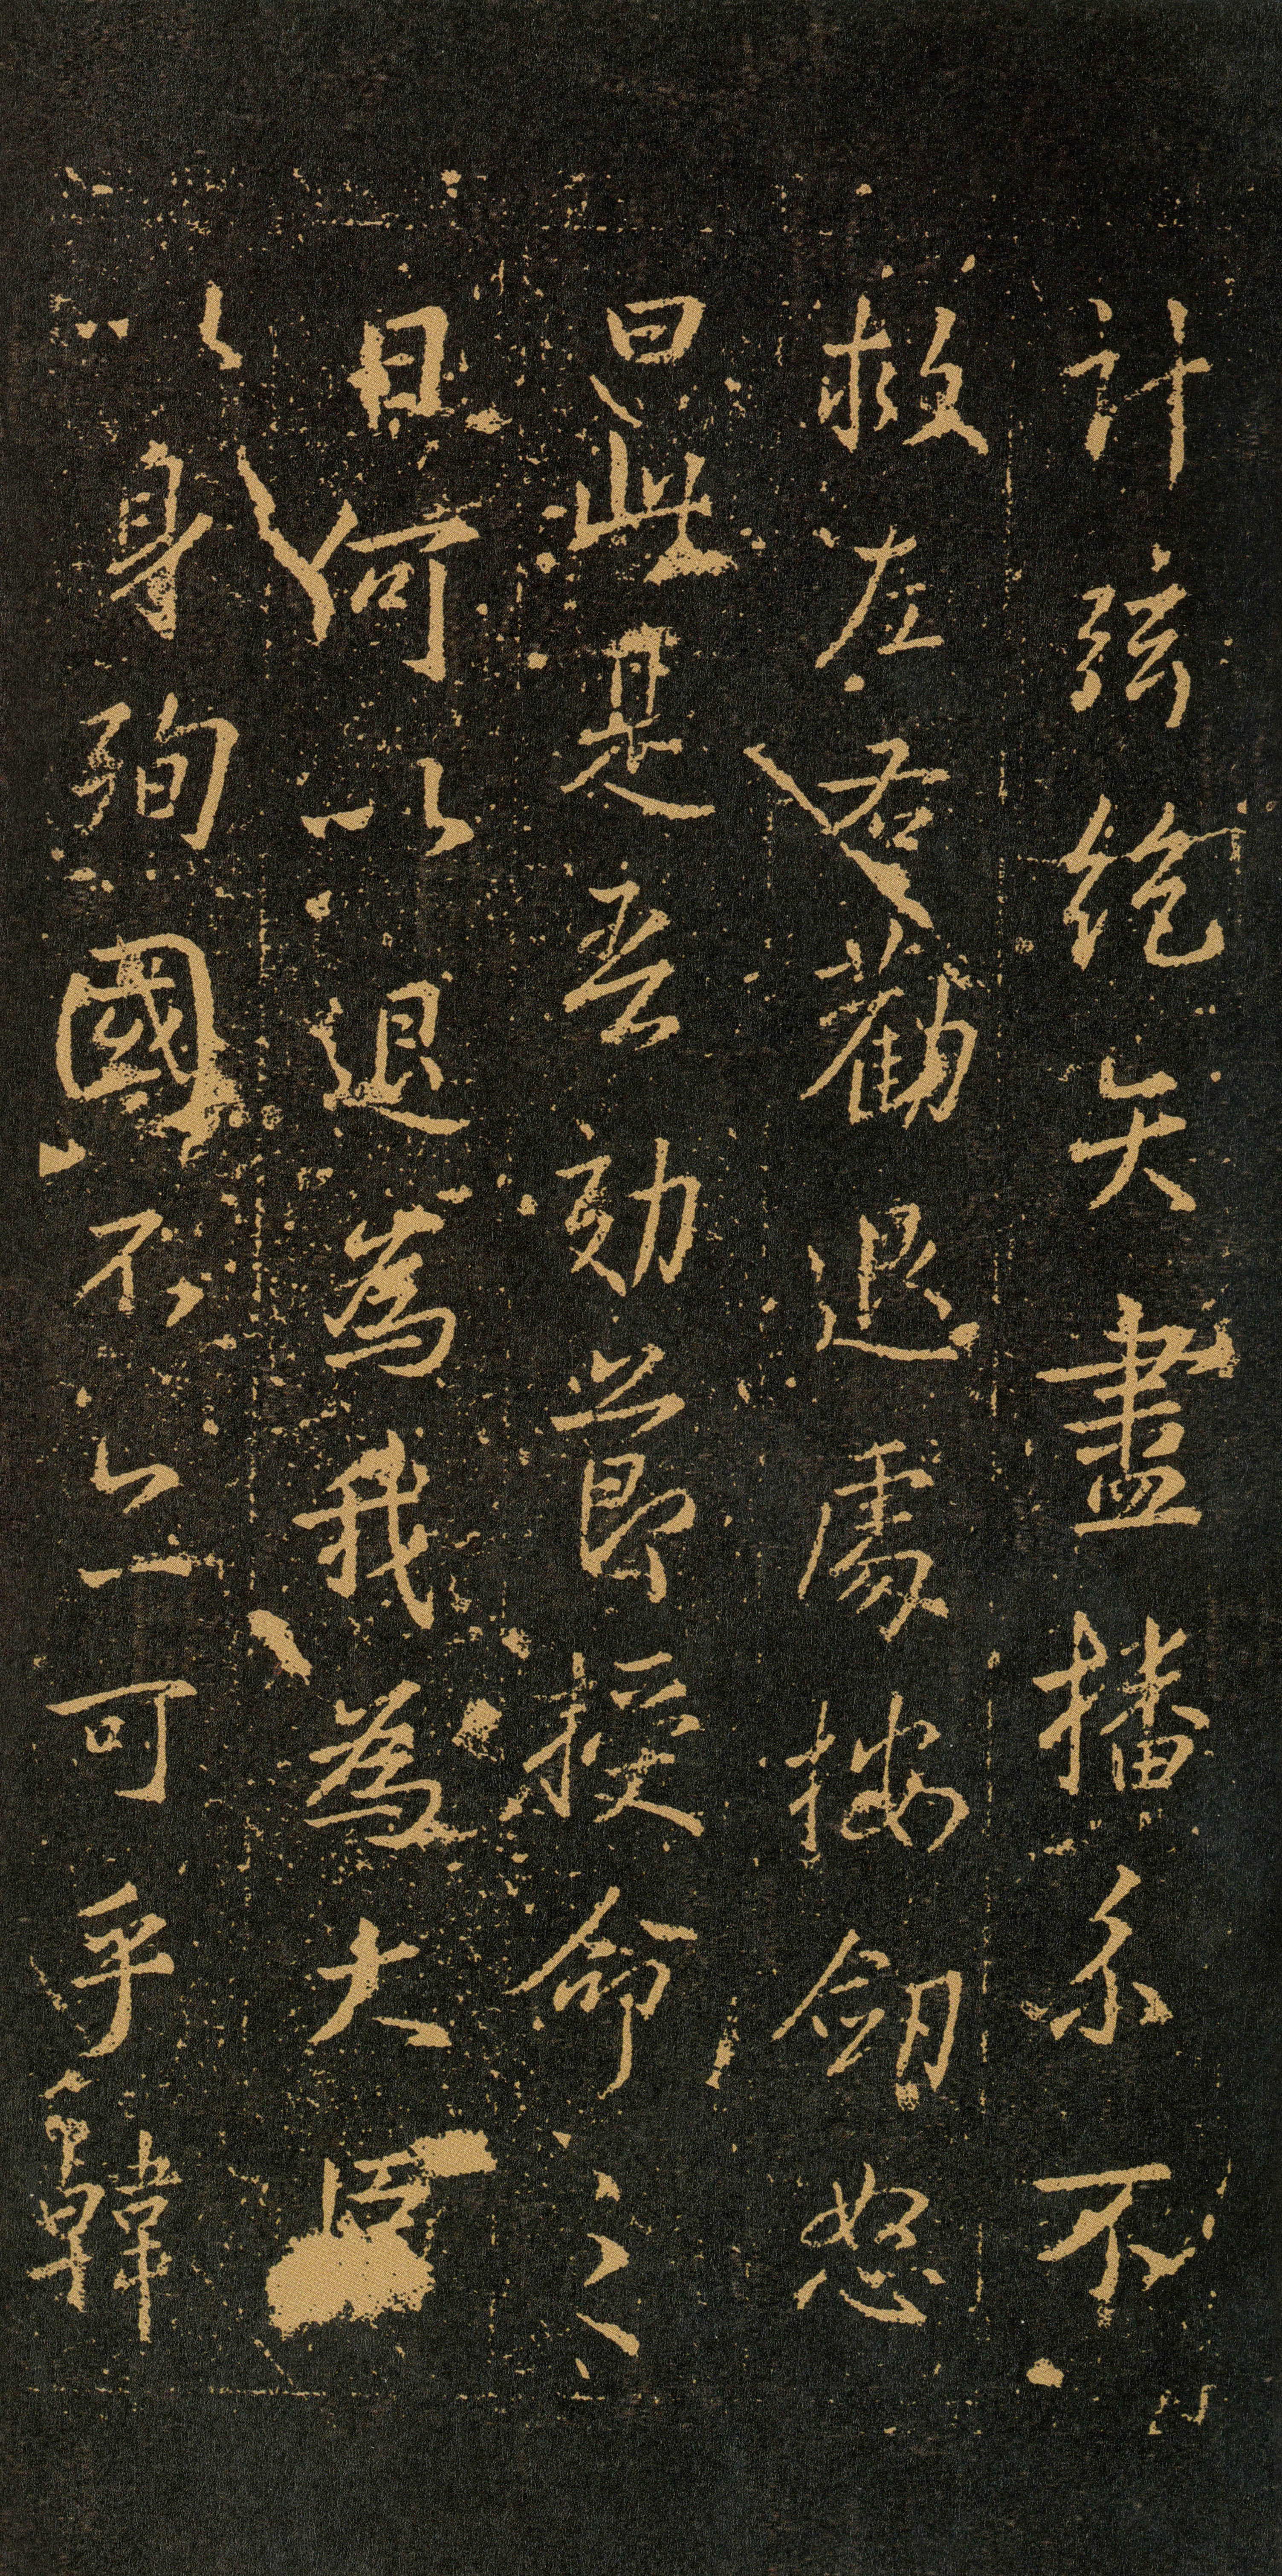 計弦絶矢盡播系不
救左右勸退處按劒怒
曰此是吾効莭授命之
日何以退為我為大臣
以身殉國不亦可乎韓